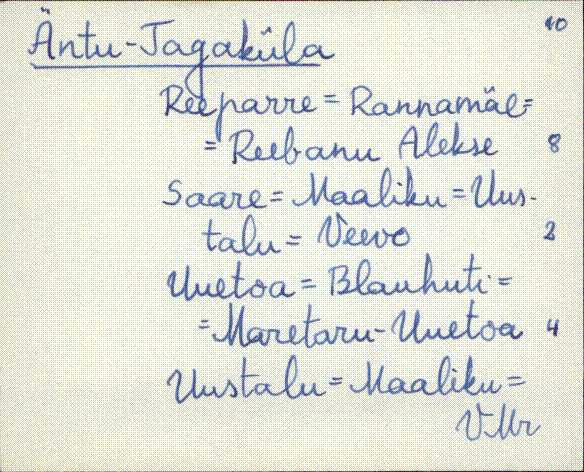 10
Äntu-Tagaküla
Reeparre = Rannamäe=
= Reebanu Alekse 8
Saare = Maaliku = Uus-
talu = Veevo 2
Uuetoa = Blauhuti =
= Maretaru-Uuetoa 4
Uustalu = Maaliku =
VMr